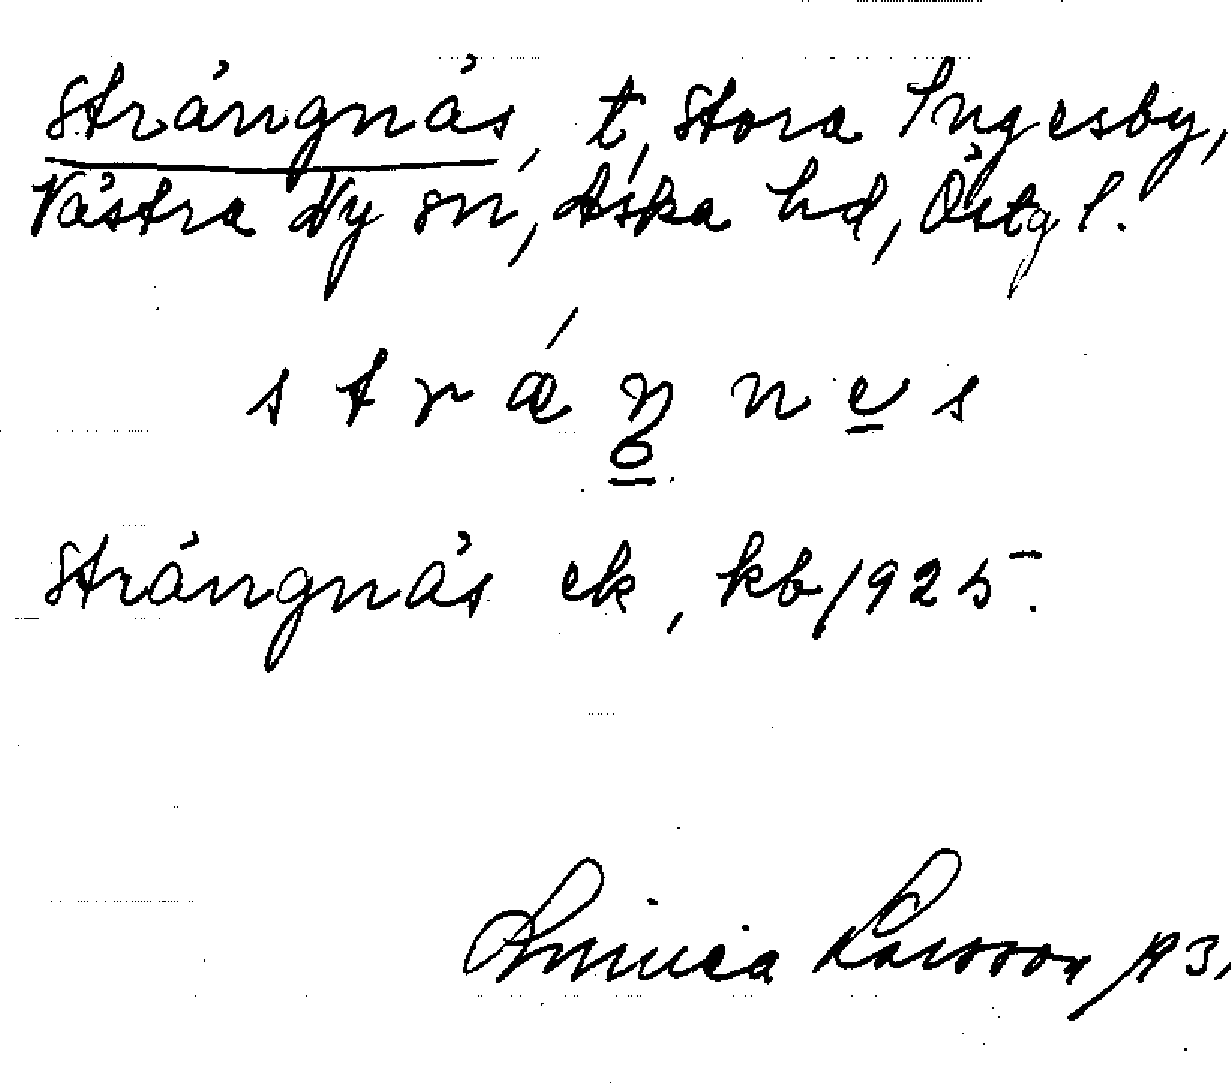 Strängnäs, t, Stora Ingesby,
Västra Ny sn, Aska hd, Östg l.
strǽŋnes
Strängnäs ek, kb 1925.
Linnea Larsson 193